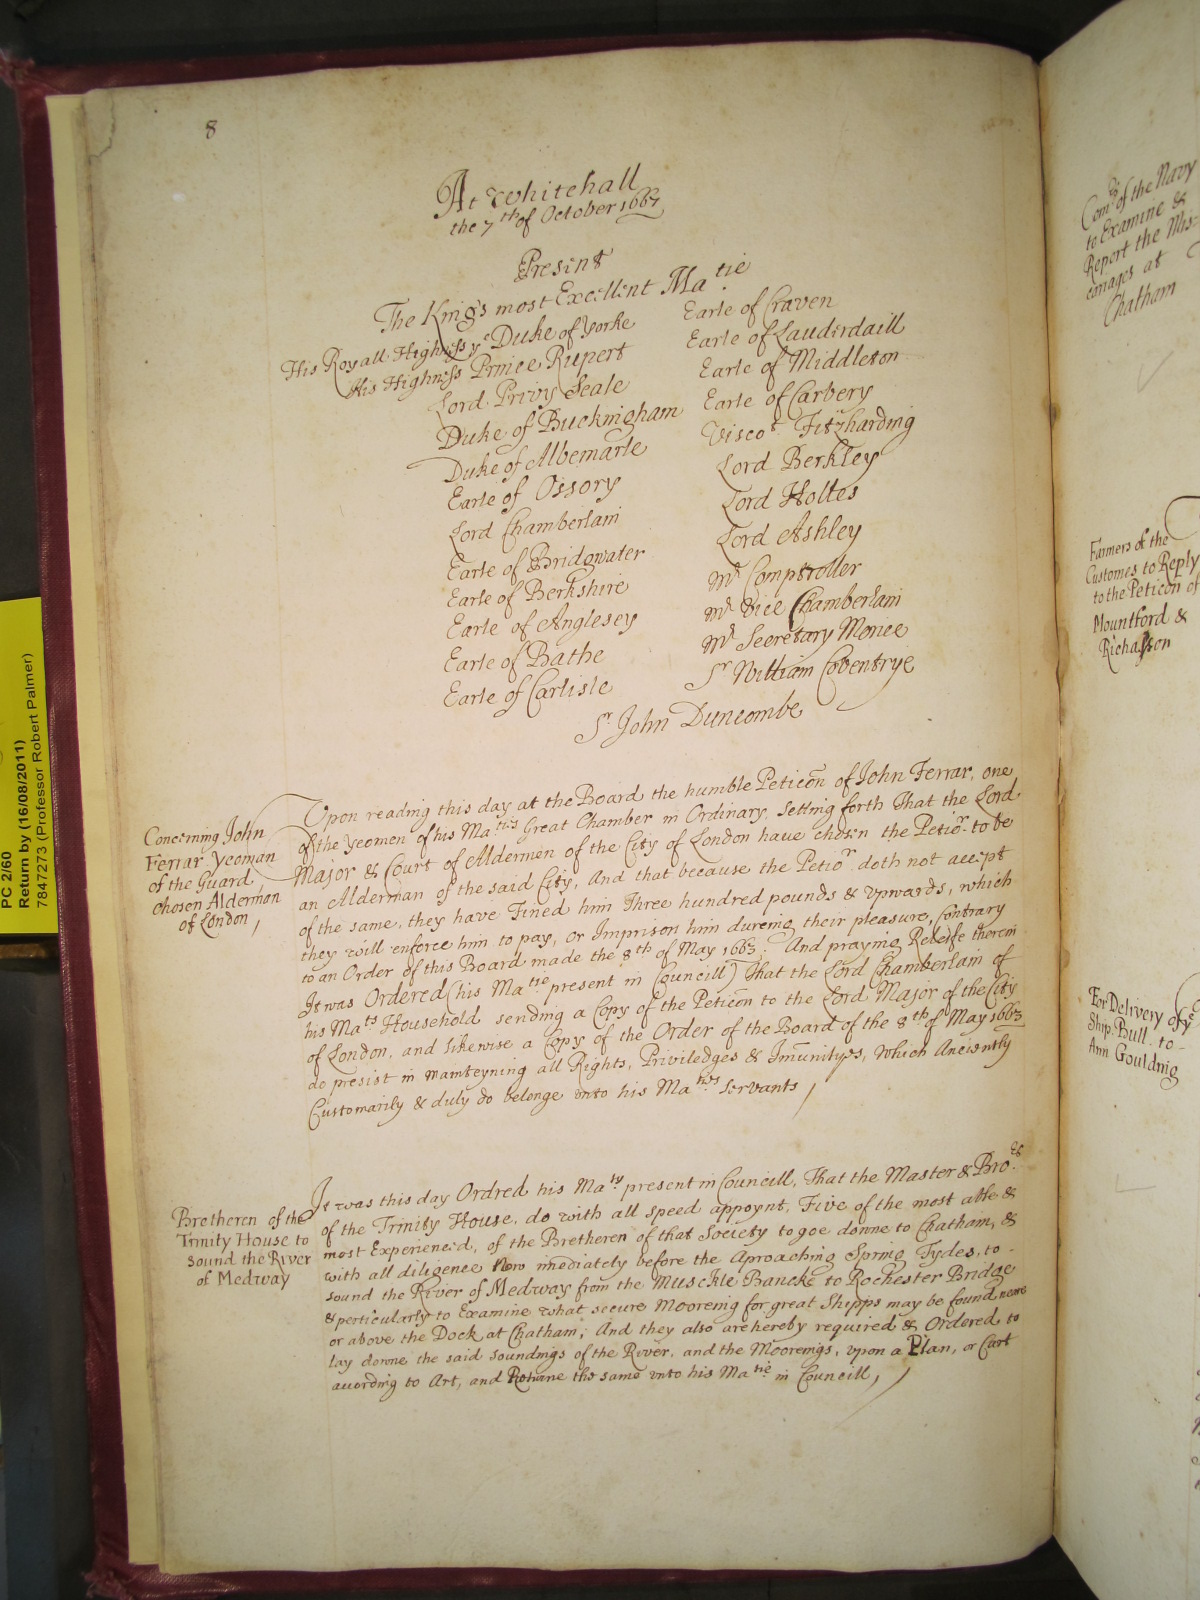 8
At Whitehall
the 7th of October 1667
Present
The Kings most Excellent Matie
His Royall Highness ye Duke of Yorke
His Highness Prince Rupert
Lord Privy Seale
Duke of Buckingham
Duke of Albemarle
Earle of Ossory
Lord Chamberlain
Earle of Bridgwater
Earle of Berkshire
Earle of Anglesey
Earle of Bathe
Earle of Carlisle
Earle of Craven
Earle of Lauderdaill
Earle of Middleton
Earle of Carbery
Viscot. Fitzharding
Lord Berkley
Lord Holles
Lord Ashley
Mr Comptroller
Mr Vice Chamberlain
Mr Secretary Morice
Sr William Coventrye
Sr. John Duncombe
Concerning John
Ferrar yeoman
of the Guard
chosen Alderman
of London,
Upon reading this day at the Board the humble Peticōn of John Ferrar, one
of the yeomen of his Matis Great Chamber in Ordinary, Setting forth That the Lord
Major & Court of Aldermen of the City of London have chosen the Petior. to be
an Alderman of the said City, And that because the Petior doth not accept
of the same, they have Fined him Three hundred pounds & upwards, which
they will enforce him to pay, or Imprison him dureing their pleasure, Contrary
to an Order of this Board made the 8th of May 1663; And praying Releife therein
It was Ordered (his Matie present in Councill) That the Lord Chamberlain of
his Mats Household sending a Copy of the Peticōn to the Lord Major of the City
of London, and likewise a Copy of the Order of the Board of the 8th of May 1663
do presist in mainteyning all Rights, Priviledges & Im̄unityes, which Anciently
Customarily & duly do belonge unto his Maties Servants,
Bretheren of the
Trinity House to
sound the River
of Medway
It was this day Ordred his Maty present in Councill, That the Master & Bro:es
of the Trinity House, do with all speed appoynt, Five of the most able &
most Experienced, of the Bretheren of that Society to goe downe to Chatham, &
with all diligence Now imediately before the Aproaching Spring Tydes, to -
sound the River of Medway from the Musckle Bancke to Rochester Bridge
& perticularly to Examine what secure Mooreing for great Shipps may be found neare
or above the Dock at Chatham; And they also are hereby required & Ordered to
lay downe the said soundings of the River, and the Moorengs, upon a Plan, or Cart
according to Art, and Returne the same unto his Matie in Councill,
Comrs of the Navy
to Examine &
Report the Mis=
cariages at
Chatham
Farmers of the
Customes to Reply
to the Peticōn of
Mountford &
Richasson
For Delivery of ye
Ship Bull to -
Ann Goulding
PC 2/60
Return by (16/08/2011)
7847273 (Professor Robert Palmer)